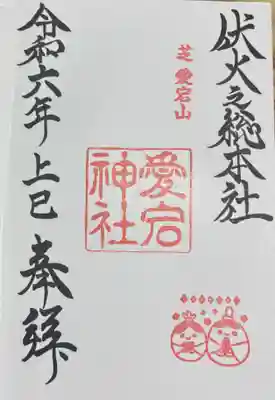 伏火之総本社
芝愛宕山
愛宕神社
奉拝
令和六年上巳